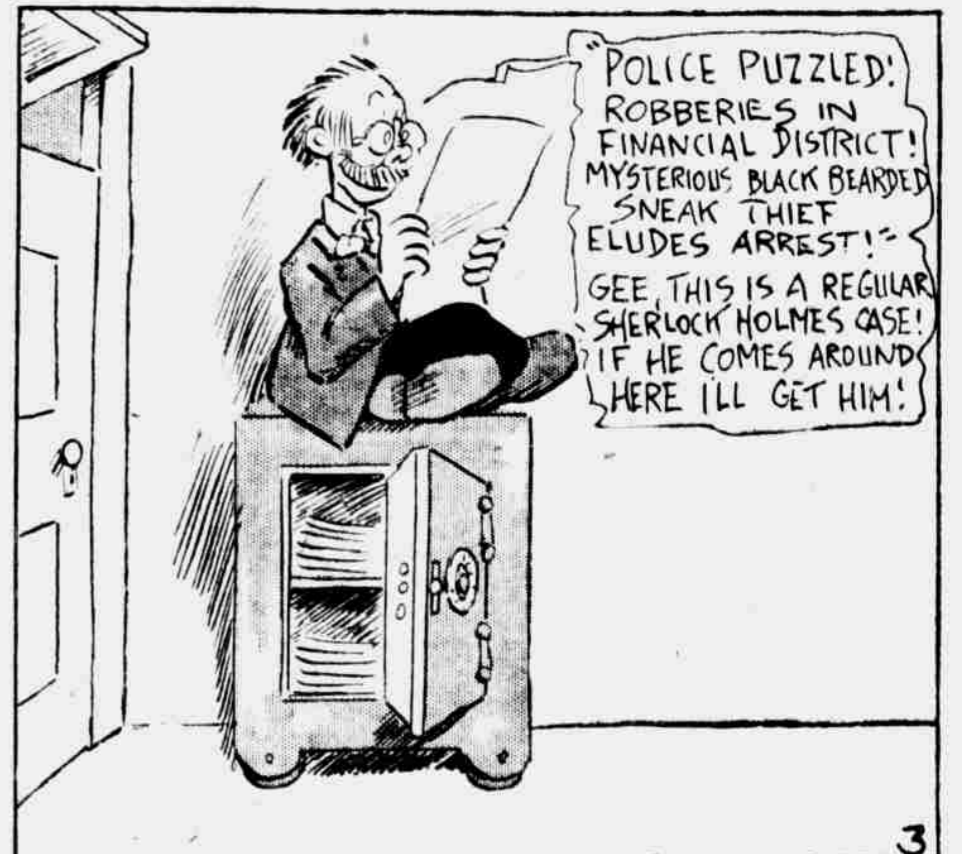 "POLICE PUZZLED!
ROBBERIES IN
FINANCIAL DISTRICT!
MYSTERIOUS BLACK BEARDED
SNEAK THIEF
ELUDES ARREST!"
GEE, THIS IS A REGULAR
SHERLOCK HOLMES CASE!
IF HE COMES AROUND
HERE I'LL GET HIM!
3